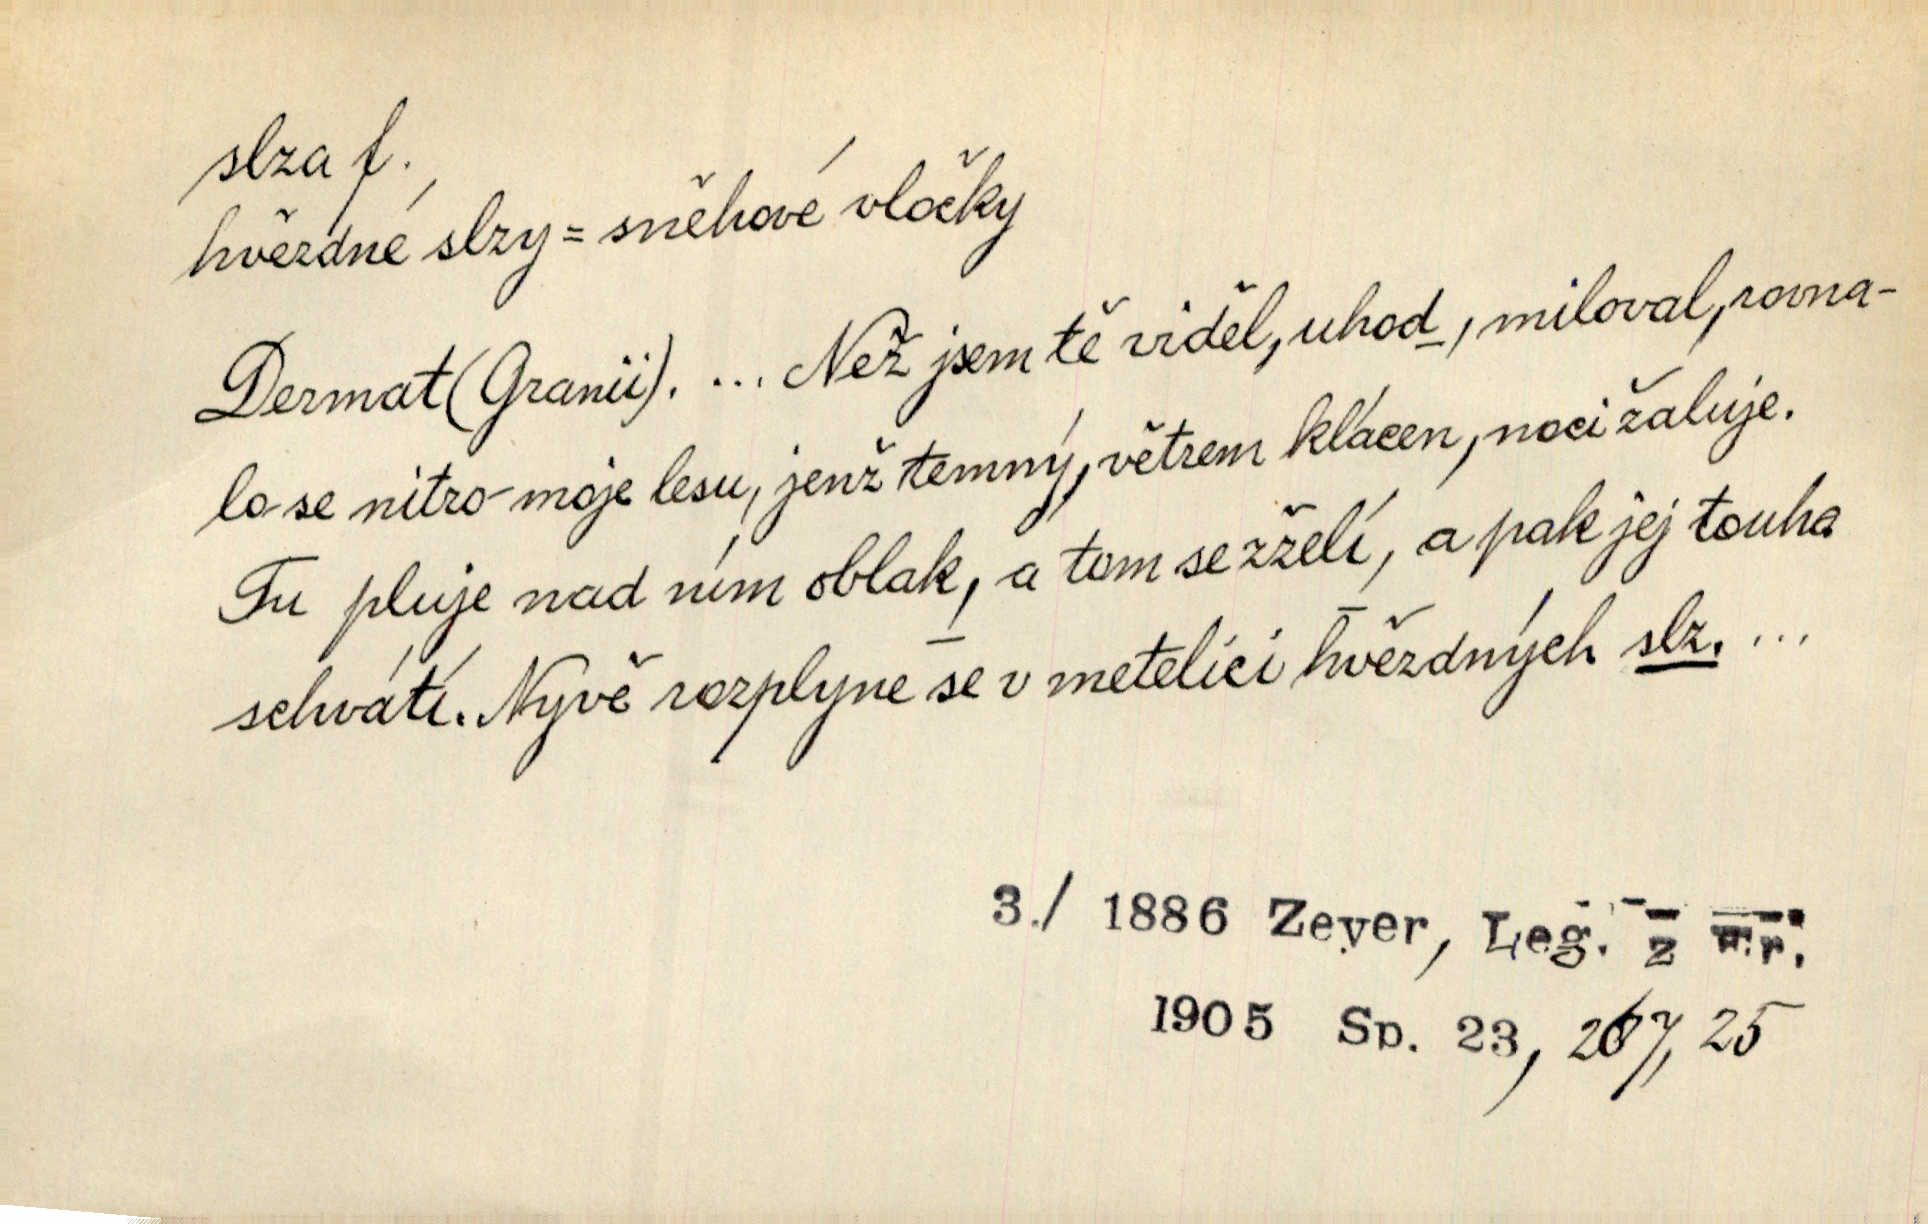 slza f.
hvězdné slzy = sněhové vločky
Dermat (Granii). ... Než jsem tě viděl, uhod, miloval, rovna-
lo se nitro moje lesu, jenž temný, větrem klácen, noci žaluje.
Tu pluje nad ním oblak, a tom se zželí, a pak jej touha
schvátí. Nyvě rozplyne se v metelici hvězdných slz. ...
3./ 1886 Zeyer, Leg. z
1905 Sp. 23, 267, 25